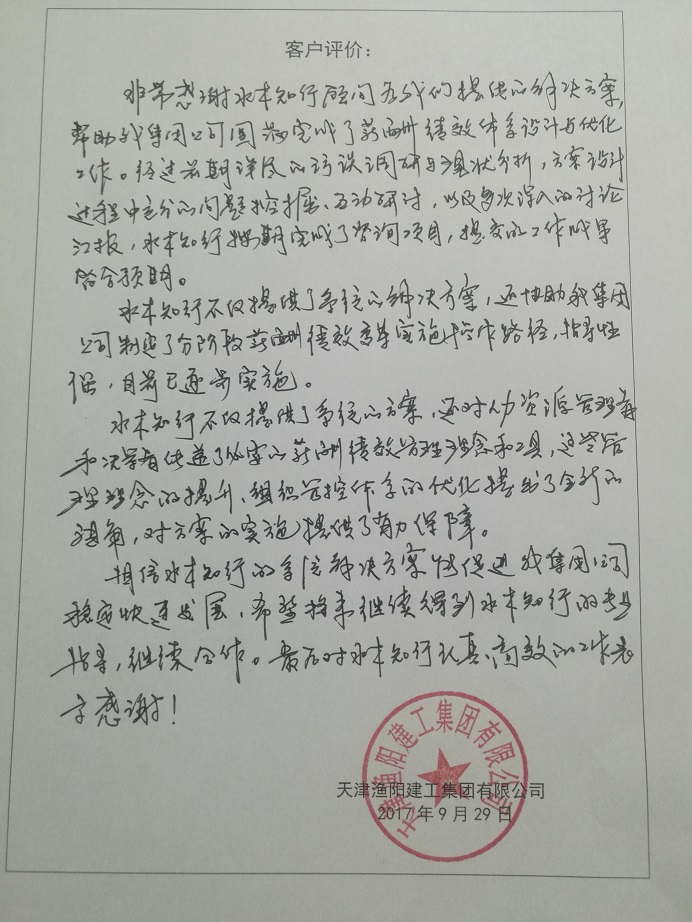 客户评价：
非常感谢水木知行顾问为我们提供的解决方案，
帮助我集团公司圆满完成了薪酬绩效体系设计与优化
工作。经过前期详尽的访谈调研与现状分析，方案设计
过程中充分的问题挖掘、互动研讨，以及多次深入的讨论
汇报，水木知行按期完成了咨询项目，提交的工作成果
符合预期。
水木知行不仅提供了系统的解决方案，还协助我集团
公司制定了分阶段薪酬绩效变革实施操作路径，指导性
强，目前已逐步实施。
水木知行不仅提供了系统的方案，还对人力资源管理者
和决策者传递了必要的薪酬绩效管理理念和工具，这些管
理理念的提升、组织管控体系的优化提出了全新的
视角，对方案的实施提供了有力保障。
相信水木知行的系统解决方案将促进我集团公司
稳定快速发展，希望将来继续得到水木知行的专业
指导，继续合作。最后对水木知行认真、高效的工作表
示感谢！
天津渔阳建工集团有限公司
天津渔阳建工集团有限公司
2017年9月29日